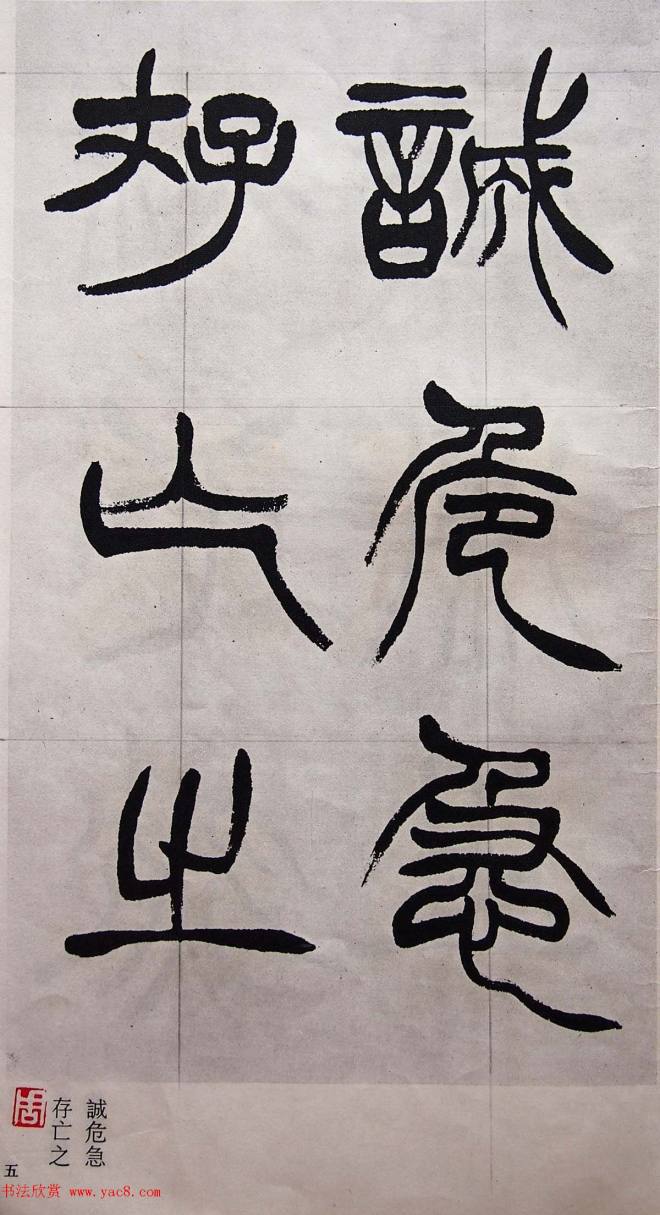 誠危急
存亡之
誠危急
存亡之
周
五
书法欣赏 www.yac8.com